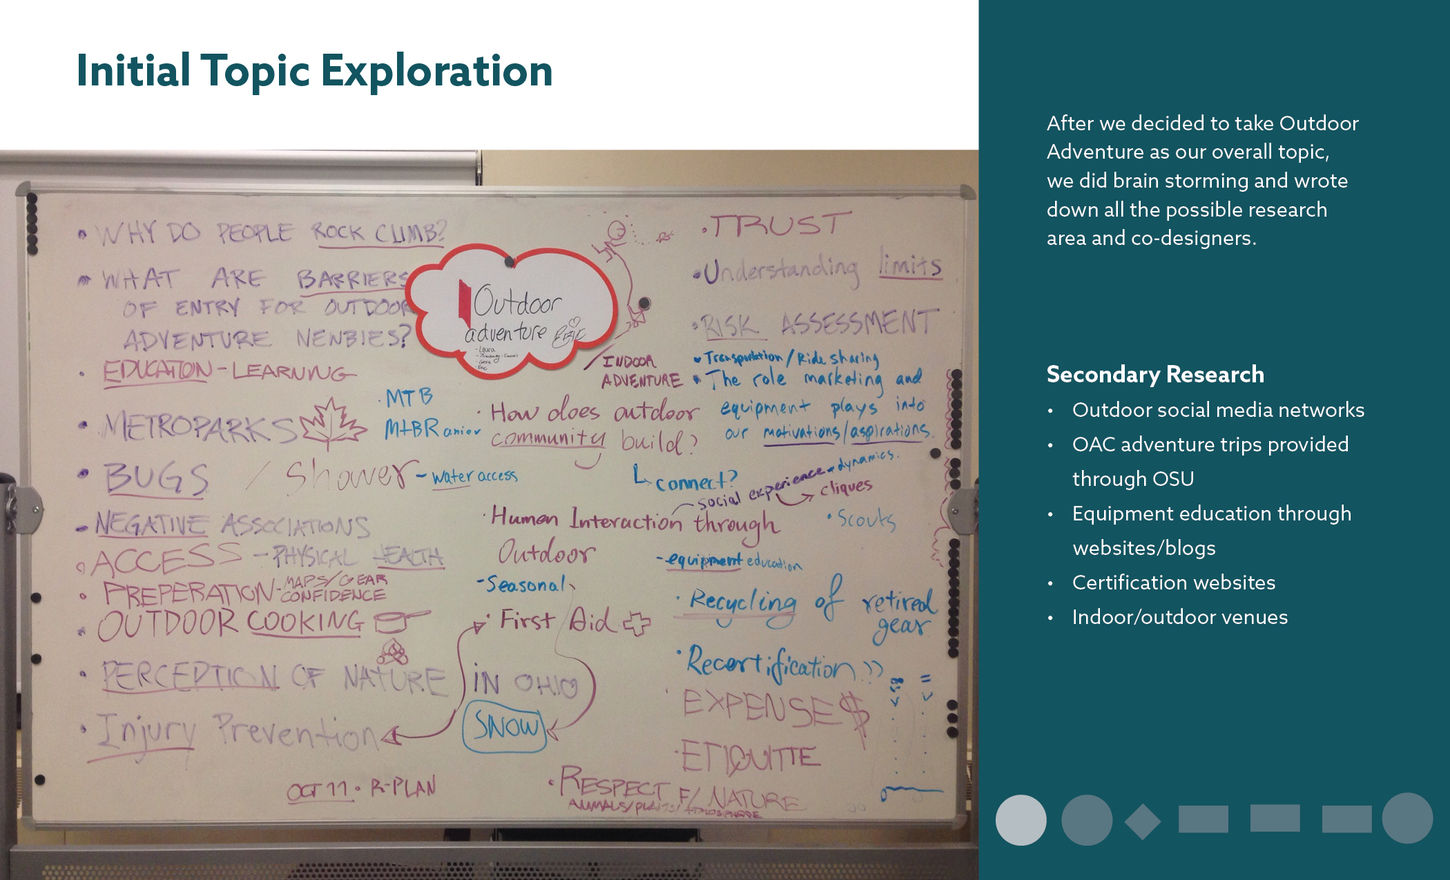 Initial Topic Exploration
• WHY DO PEOPLE ROCK CLIMB?
• WHAT ARE BARRIERS
OF ENTRY FOR OUTDOOR
ADVENTURE NEWBIES?
• EDUCATION - LEARNING
• METROPARKS
• MTB
MtBR
• BUGS / Shower - water access
- NEGATIVE ASSOCIATIONS
• ACCESS - PHYSICAL HEALTH
• PREPERATION - MAPS/GEAR
CONFIDENCE
• OUTDOOR COOKING
• PERCEPTION OF NATURE IN OHIO
• Injury Prevention
OCT 11 • R-PLAN
Outdoor
adventure
EPIC
- Laura
INDOOR
ADVENTURE
• How does outdoor
community build?
connect?
social experience dynamics.
cliques
• Human Interaction through
Outdoor
- Seasonal
• First Aid
SNOW
• RESPECT F/ NATURE
ANIMALS/PLANTS/ATMOSPHERE
• TRUST
• Understanding limits
• RISK ASSESSMENT
• Transportation / Ride sharing
• The role marketing and
equipment plays into
our motivations/aspirations.
• Scouts
- equipment education
• Recycling of retired
gear
• Recertification
• EXPENSE $
• ETIQUITTE
After we decided to take Outdoor
Adventure as our overall topic,
we did brain storming and wrote
down all the possible research
area and co-designers.
Secondary Research
• Outdoor social media networks
• OAC adventure trips provided
through OSU
• Equipment education through
websites/blogs
• Certification websites
• Indoor/outdoor venues